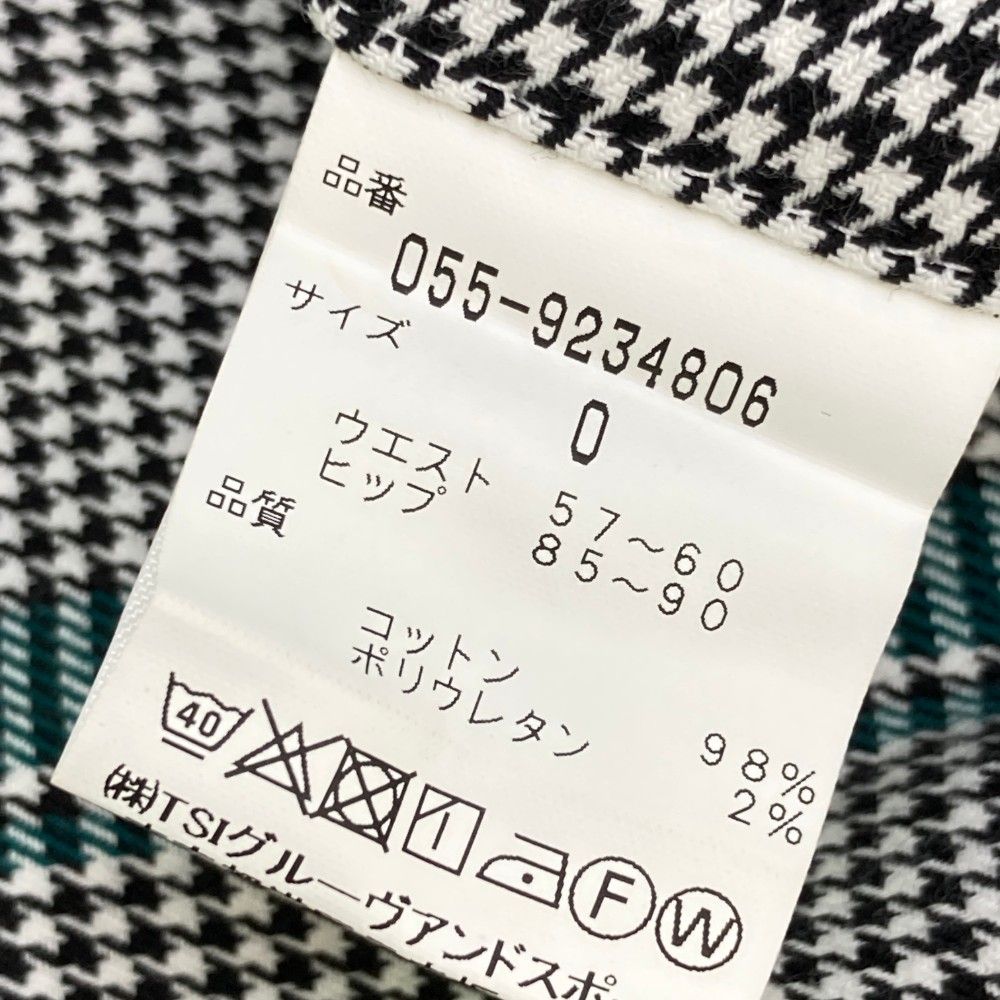 品番
055-9234806
サイズ
0
ウエスト 57～60
ヒップ 85～90
品質
コットン 98%
ポリウレタン 2%
40 F W
(株)TSIグルーヴアンドスポ